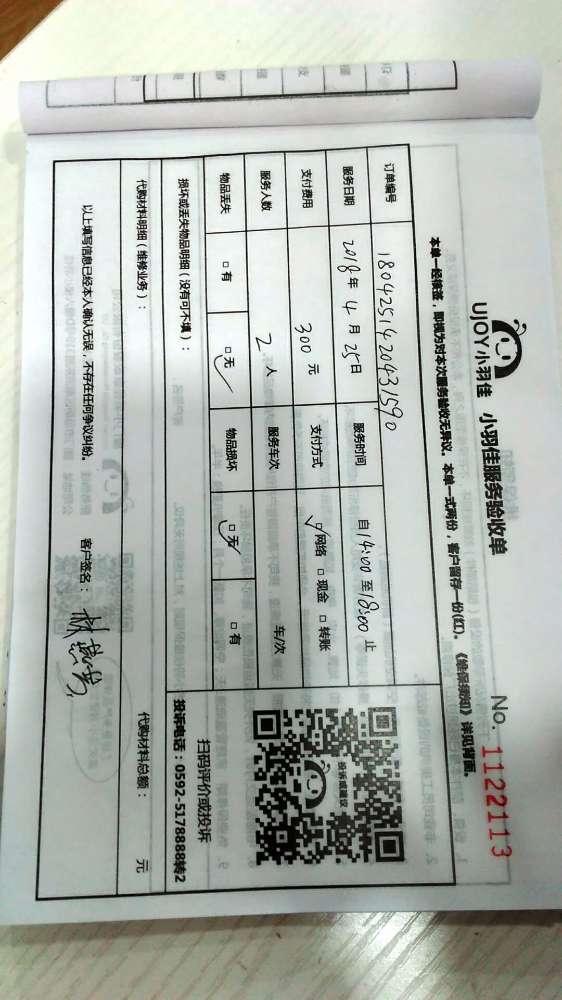 UJOY小羽佳 小羽佳服务验收单
No. 1122113
本单一经接签，即视为对本次服务验收无异议。本单一式两份，客户留存一份(红)。《维保须知》详见背面。
订单编号 1804251420431590
服务日期 2018年 4月 25日 服务时间 自14:00至18:00止
支付费用 300元 支付方式 ☑网络 □现金 □转账
服务人数 2人 服务车次 车/次
物品丢失 □有 ☑无 物品损坏 ☑无 □有
投诉或建议
扫码评价或投诉
投诉电话：0592-5178888转2
损坏或丢失物品明细（没有可不填）：
代购材料明细（维修业务）： 代购材料总额： 元
以上填写信息已经本人确认无误，不存在任何争议纠纷。 客户签名：